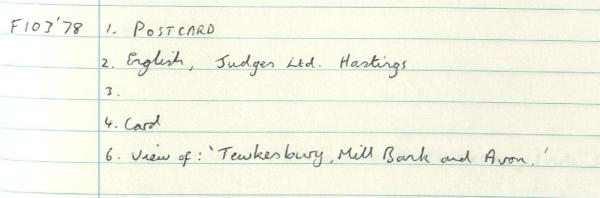 F103'78 1. POSTCARD
2. English, Judges Ltd. Hastings
3.
4. Card
6. View of: 'Tewkesbury, Mill Bank and Avon.'